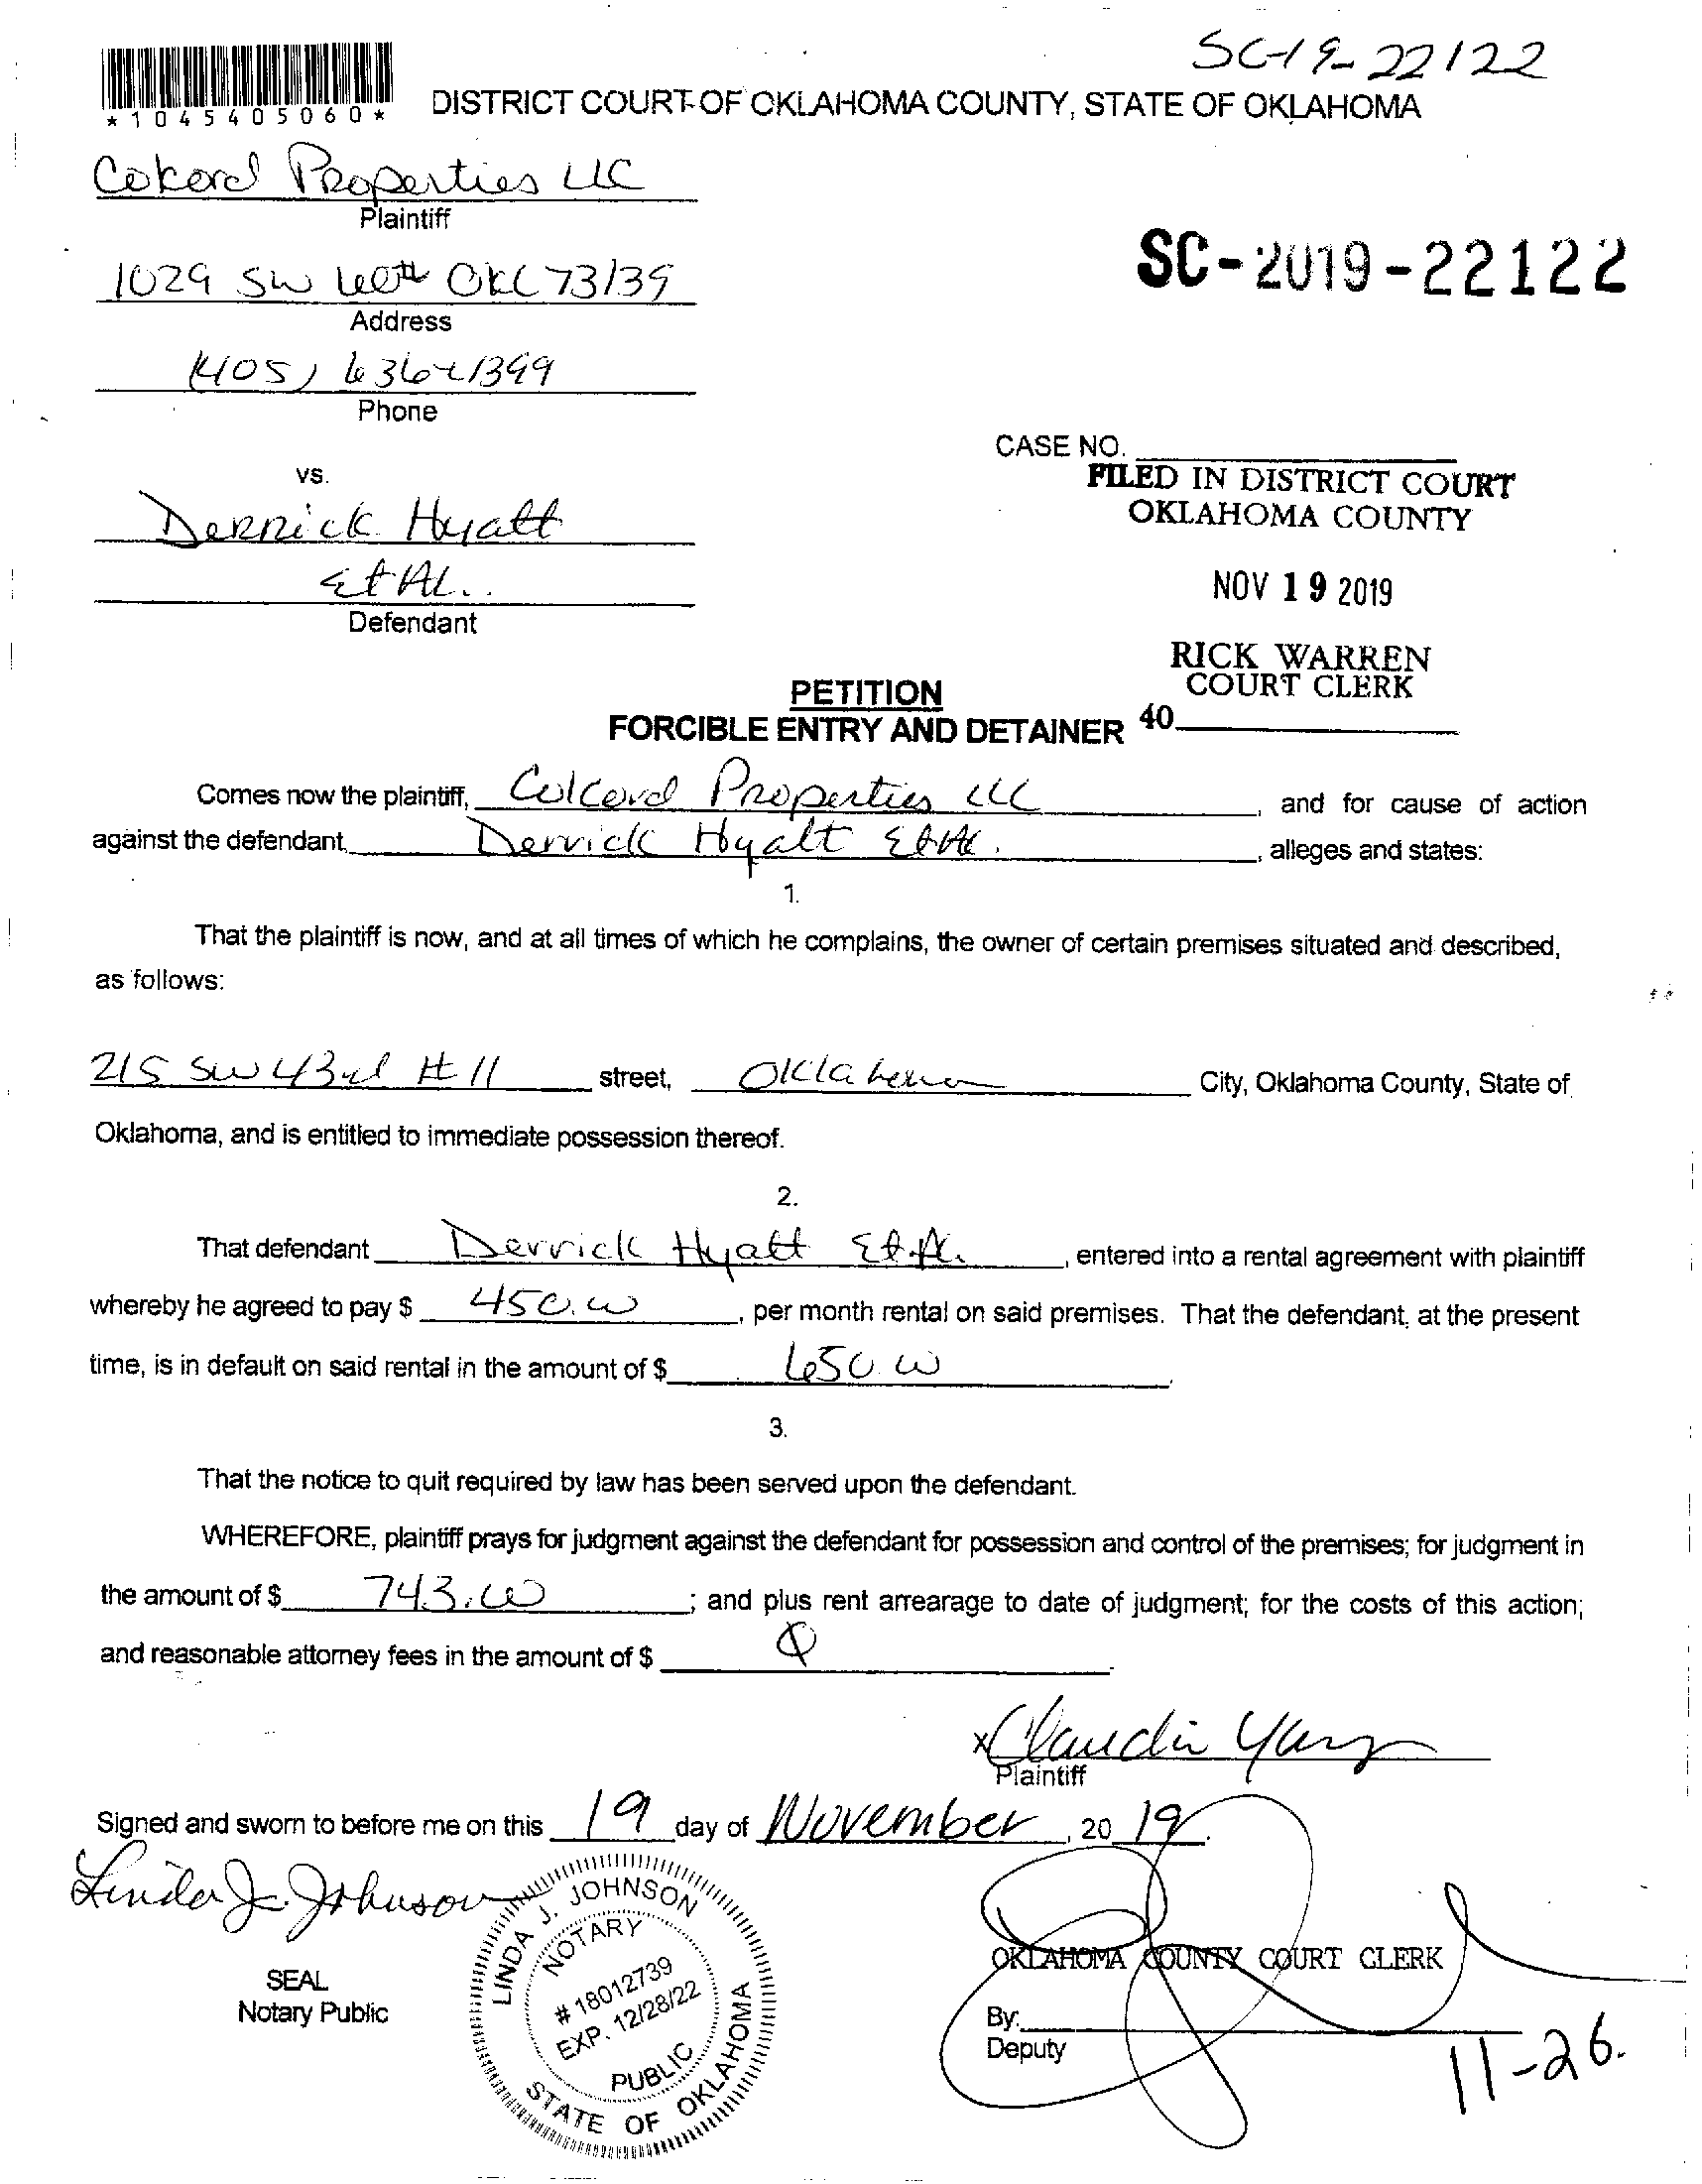 SC-19-22122
*1045405060*
DISTRICT COURT OF OKLAHOMA COUNTY, STATE OF OKLAHOMA
Cokord Properties LLC
Plaintiff
1029 SW 60th OKC 73139
Address
SC-2019-22122
(405) 636-1399
Phone
CASE NO.
vs.
FILED IN DISTRICT COURT
OKLAHOMA COUNTY
Derrick Hyatt
Et Al..
NOV 19 2019
Defendant
RICK WARREN
COURT CLERK
PETITION
FORCIBLE ENTRY AND DETAINER 40
Comes now the plaintiff, Colcord Properties LLC, and for cause of action
against the defendant, Derrick Hyatt Et Al., alleges and states:
1.
That the plaintiff is now, and at all times of which he complains, the owner of certain premises situated and described,
as follows:
215 SW 43rd #11 street, Oklahoma City, Oklahoma County, State of
Oklahoma, and is entitled to immediate possession thereof.
2.
That defendant Derrick Hyatt Et Al., entered into a rental agreement with plaintiff
whereby he agreed to pay $ 450.00, per month rental on said premises. That the defendant, at the present
time, is in default on said rental in the amount of $ 650.00
3.
That the notice to quit required by law has been served upon the defendant.
WHEREFORE, plaintiff prays for judgment against the defendant for possession and control of the premises; for judgment in
the amount of $ 743.00; and plus rent arrearage to date of judgment; for the costs of this action;
and reasonable attorney fees in the amount of $ 0
x Claudia
Plaintiff
Signed and sworn to before me on this 19 day of November, 20 19.
Linda J. Johnson
LINDA J. JOHNSON
NOTARY
# 18012739
EXP. 12/28/22
PUBLIC
STATE OF OKLAHOMA
SEAL
Notary Public
OKLAHOMA COUNTY COURT CLERK
By:
Deputy
11-26.